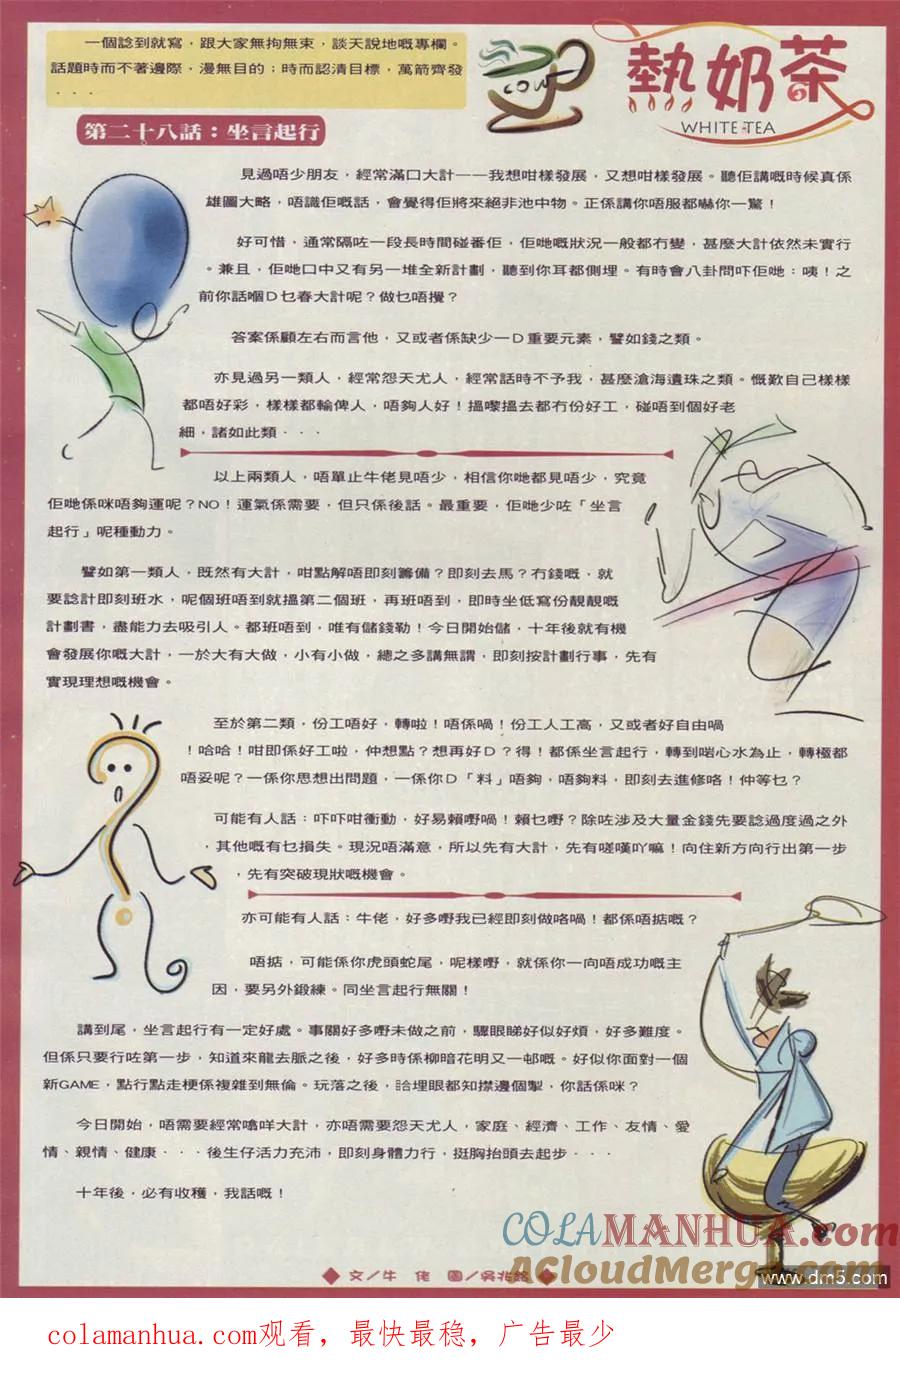 一個諗到就寫，跟大家無拘無束，談天說地嘅專欄。
話題時而不著邊際，漫無目的；時而認清目標，萬箭齊發
．．．
COW
熱奶茶
WHITE TEA
第二十八話：坐言起行
見過唔少朋友，經常滿口大計——我想咁樣發展，又想咁樣發展。聽佢講嘅時候真係
雄圖大略，唔識佢嘅話，會覺得佢將來絕非池中物。正係講你唔服都嚇你一驚！
好可惜，通常隔咗一段長時間碰番佢，佢哋嘅狀況一般都冇變，甚麼大計依然未實行
。兼且，佢哋口中又有另一堆全新計劃，聽到你耳都側埋。有時會八卦問吓佢哋：咦！之
前你話嗰Ｄ乜春大計呢？做乜唔攪？
答案係顧左右而言他，又或者係缺少一Ｄ重要元素，譬如錢之類。
亦見過另一類人，經常怨天尤人，經常話時不予我，甚麼滄海遺珠之類。慨歎自己樣樣
都唔好彩，樣樣都輸俾人，唔夠人好！搵嚟搵去都冇份好工，碰唔到個好老
細，諸如此類．．．
以上兩類人，唔單止牛佬見唔少，相信你哋都見唔少，究竟
佢哋係咪唔夠運呢？NO！運氣係需要，但只係後話。最重要，佢哋少咗「坐言
起行」呢種動力。
譬如第一類人，既然有大計，咁點解唔即刻籌備？即刻去馬？冇錢嘅，就
要諗計即刻班水，呢個班唔到就搵第二個班，再班唔到，即時坐低寫份靚靚嘅
計劃書，盡能力去吸引人。都班唔到，唯有儲錢勒！今日開始儲，十年後就有機
會發展你嘅大計，一於大有大做，小有小做，總之多講無謂，即刻按計劃行事，先有
實現理想嘅機會。
至於第二類，份工唔好，轉啦！唔係喎！份工人工高，又或者好自由喎
！哈哈！咁即係好工啦，仲想點？想再好Ｄ？得！都係坐言起行，轉到啱心水為止，轉極都
唔妥呢？一係你思想出問題，一係你Ｄ「料」唔夠，唔夠料，即刻去進修咯！仲等乜？
可能有人話：吓吓咁衝動，好易賴嘢喎！賴乜嘢？除咗涉及大量金錢先要諗過度過之外
，其他嘅有乜損失。現況唔滿意，所以先有大計，先有嗟嘆吖嘛！向住新方向行出第一步
，先有突破現狀嘅機會。
亦可能有人話：牛佬，好多嘢我已經即刻做咯喎！都係唔掂嘅？
唔掂，可能係你虎頭蛇尾，呢樣嘢，就係你一向唔成功嘅主
因，要另外鍛練。同坐言起行無關！
講到尾，坐言起行有一定好處。事關好多嘢未做之前，驟眼睇好似好煩，好多難度。
但係只要行咗第一步，知道來龍去脈之後，好多時係柳暗花明又一邨嘅。好似你面對一個
新GAME，點行點走梗係複雜到無倫。玩落之後，眙埋眼都知㩒邊個掣，你話係咪？
今日開始，唔需要經常噏咩大計，亦唔需要怨天尤人，家庭、經濟、工作、友情、愛
情、親情、健康．．．後生仔活力充沛，即刻身體力行，挺胸抬頭去起步．．．
十年後，必有收穫，我話嘅！
COLAMANHUA.com
ACloudMerge.com
www.dm5.com
文／牛 佬 圖／吳兆銘
colamanhua.com观看，最快最稳，广告最少